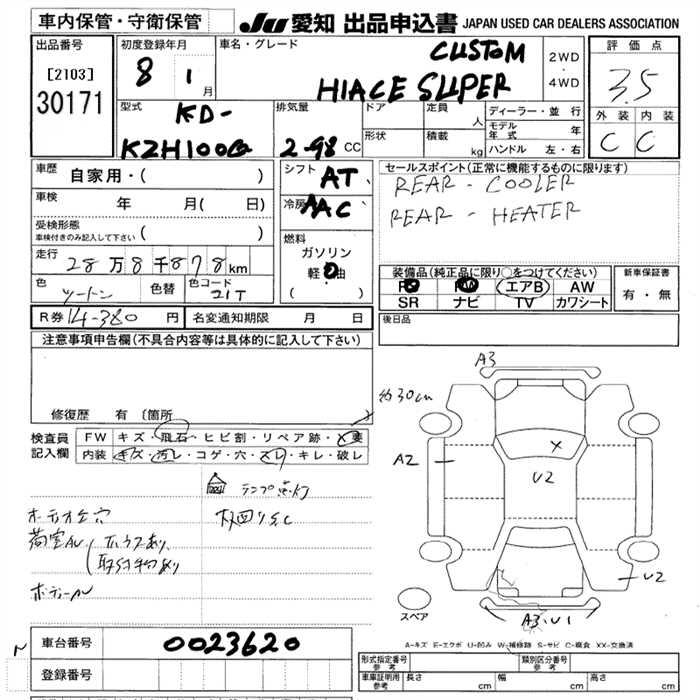 車内保管・守衛保管
JU 愛知 出品申込書 JAPAN USED CAR DEALERS ASSOCIATION
出品番号
[2103]
30171
初度登録年月
8 1 月
車名・グレード
CUSTOM
HIACE SUPER
2WD
・
4WD
評価点
3.5
外装 内装
C C
型式
KD-
KZH100G
排気量
2-98 CC
ドア
形状
定員 人
積載 kg
ディーラー・並行
モデル年式 年
ハンドル 左・右
車歴
自家用・( )
車検 年 月( 日)
受検形態
車検付きのみ記入して下さい ( )
走行
28万8千878km
色
ツートン
色替
色コード
21T
シフト
AT
冷房
AAC
燃料
ガソリン
軽油
( )
セールスポイント(正常に機能するものに限ります)
REAR - COOLER
REAR - HEATER
装備品(純正品に限り○をつけてください)
エアB AW
SR ナビ TV カワシート
新車保証書
有・無
R券 14-380 円
名変通知期限 月 日
後日品
注意事項申告欄(不具合内容等は具体的に記入して下さい)
修復歴 有 〔箇所
検査員
記入欄
FW キズ・飛石・ヒビ割・リペア跡・X要
内装 キズ・汚レ・コゲ・穴・スレ・キレ・破レ
ランプ点灯
A3
約30cm
A2
X
U2
U2
A3.U1
スペア
A-キズ E-エクボ U-凹み W-補修跡 S-サビ C-腐食 XX-交換済
車台番号
0023620
登録番号
形式指定番号
参考
類別区分番号
参考
車庫証明用
参考
長さ cm
幅 cm
高さ cm